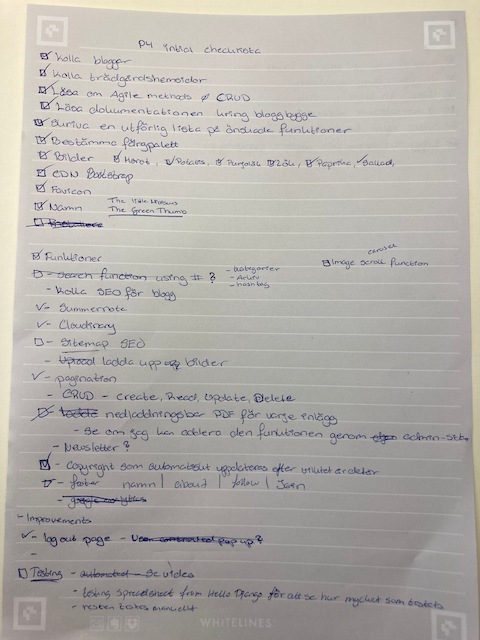 P4 initial checklista
Kolla bloggar
Kolla trädgårdshemsidor
Läsa om Agile methods & CRUD
Läsa dokumentationen kring bloggbygge
Skriva en utförlig lista på önskade funktioner
Bestämma färgpalett
Bilder Morot, Potatis, Purjolök Lök, Paprika, Sallad,
CDN Bootstrap
Favicon
Namn The Little Widows
The Green Thumb
Funktioner
carousel
Image scroll function
- Search function using # ? - kategorier
- Arkiv
- hashtag
- Kolla SEO för blogg
- Summernote
- Cloudinary
- Sitemap SEO
- Upload ladda upp bilder
- pagination
- CRUD - create, Read, Update, Delete
- nedladdningsbar PDF för varje inlägg
- Se om jag kan addera den funktionen genom admin-site
- Newsletter ?
- Copyright som automatiskt uppdateras efter
- footer namn | about | follow | Join
- google analytics
- Improvements
- log out page - User controlled pop up?
-
Testing - automated - Se video
- testing spreadsheet from Hello Django för att se hur mycket som testats
- resten testas manuellt
WHITELINES